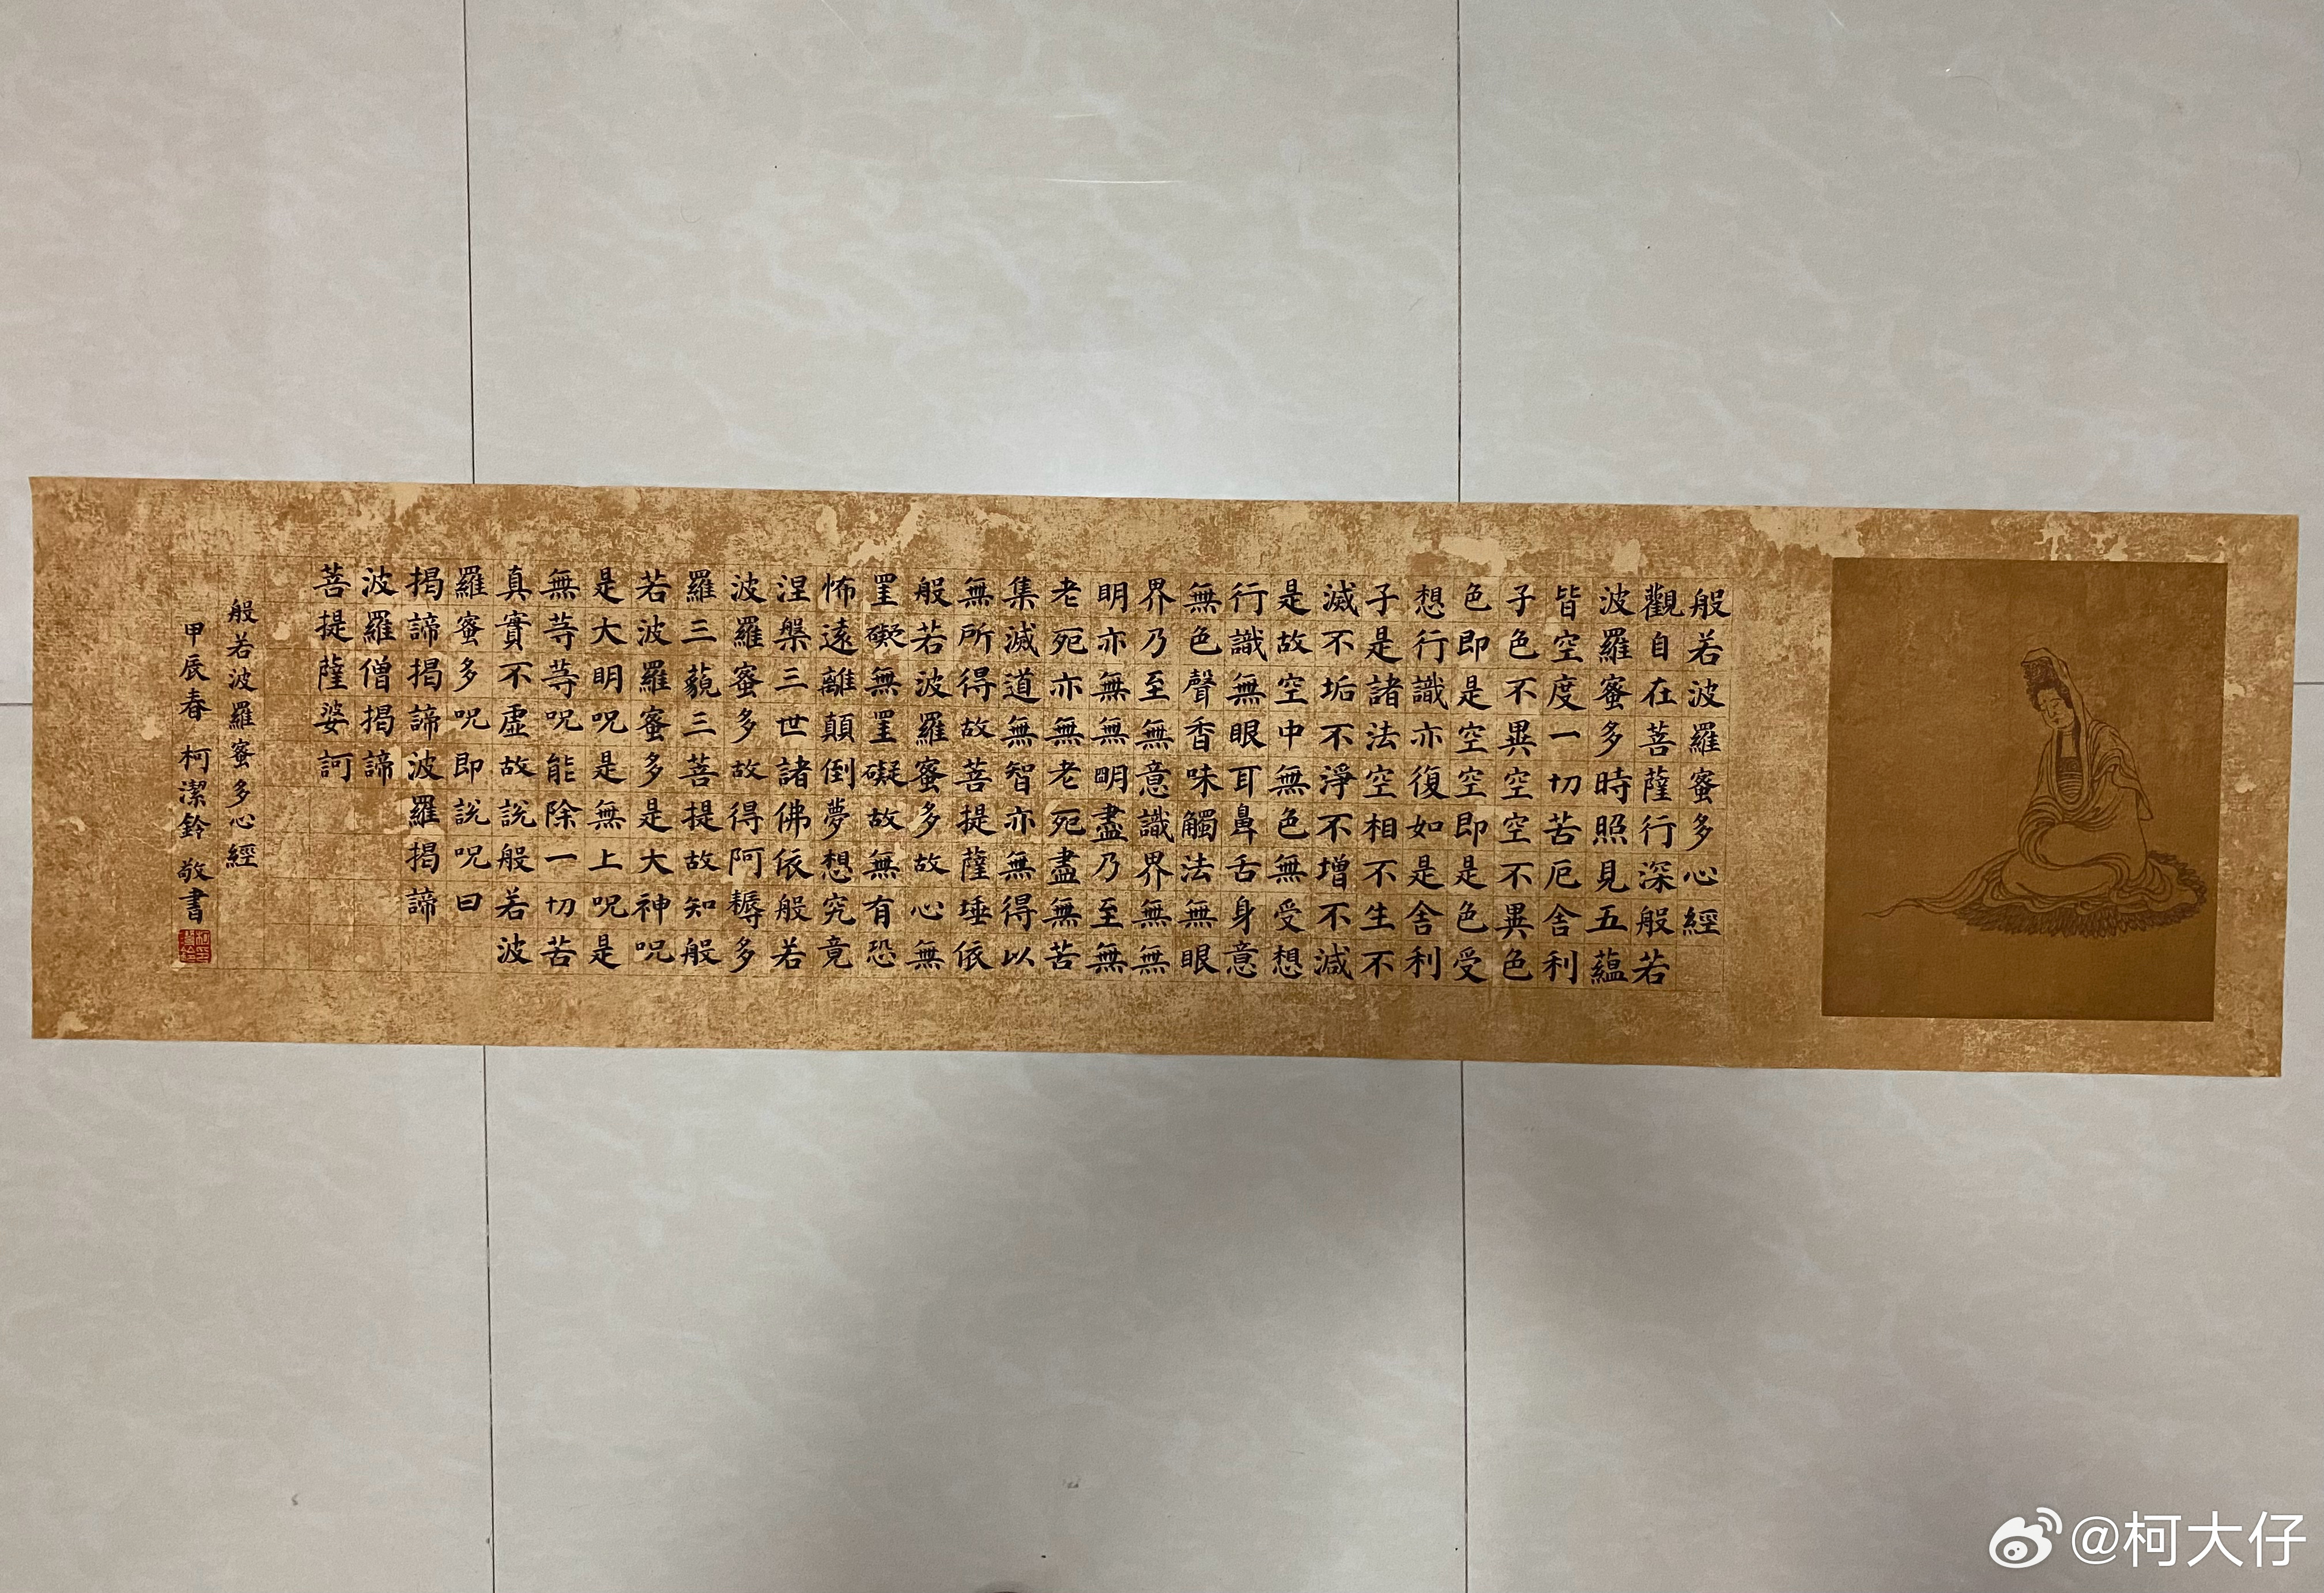 般若波羅蜜多心經
觀自在菩薩行深般若
波羅蜜多時照見五蘊
皆空度一切苦厄舍利
子色不異空空不異色
色即是空空即是色受
想行識亦復如是舍利
子是諸法空相不生不
滅不垢不淨不增不減
是故空中無色無受想
行識無眼耳鼻舌身意
無色聲香味觸法無眼
界乃至無意識界無無
明亦無無明盡乃至無
老死亦無老死盡無苦
集滅道無智亦無得以
無所得故菩提薩埵依
般若波羅蜜多故心無
罣礙無罣礙故無有恐
怖遠離顛倒夢想究竟
涅槃三世諸佛依般若
波羅蜜多故得阿耨多
羅三藐三菩提故知般
若波羅蜜多是大神呪
是大明呪是無上呪是
無等等呪能除一切苦
真實不虛故說般若波
羅蜜多呪即說呪曰
揭諦揭諦波羅揭諦
波羅僧揭諦
菩提薩婆訶
般若波羅蜜多心經
甲辰春 柯潔鈴 敬書
@柯大仔